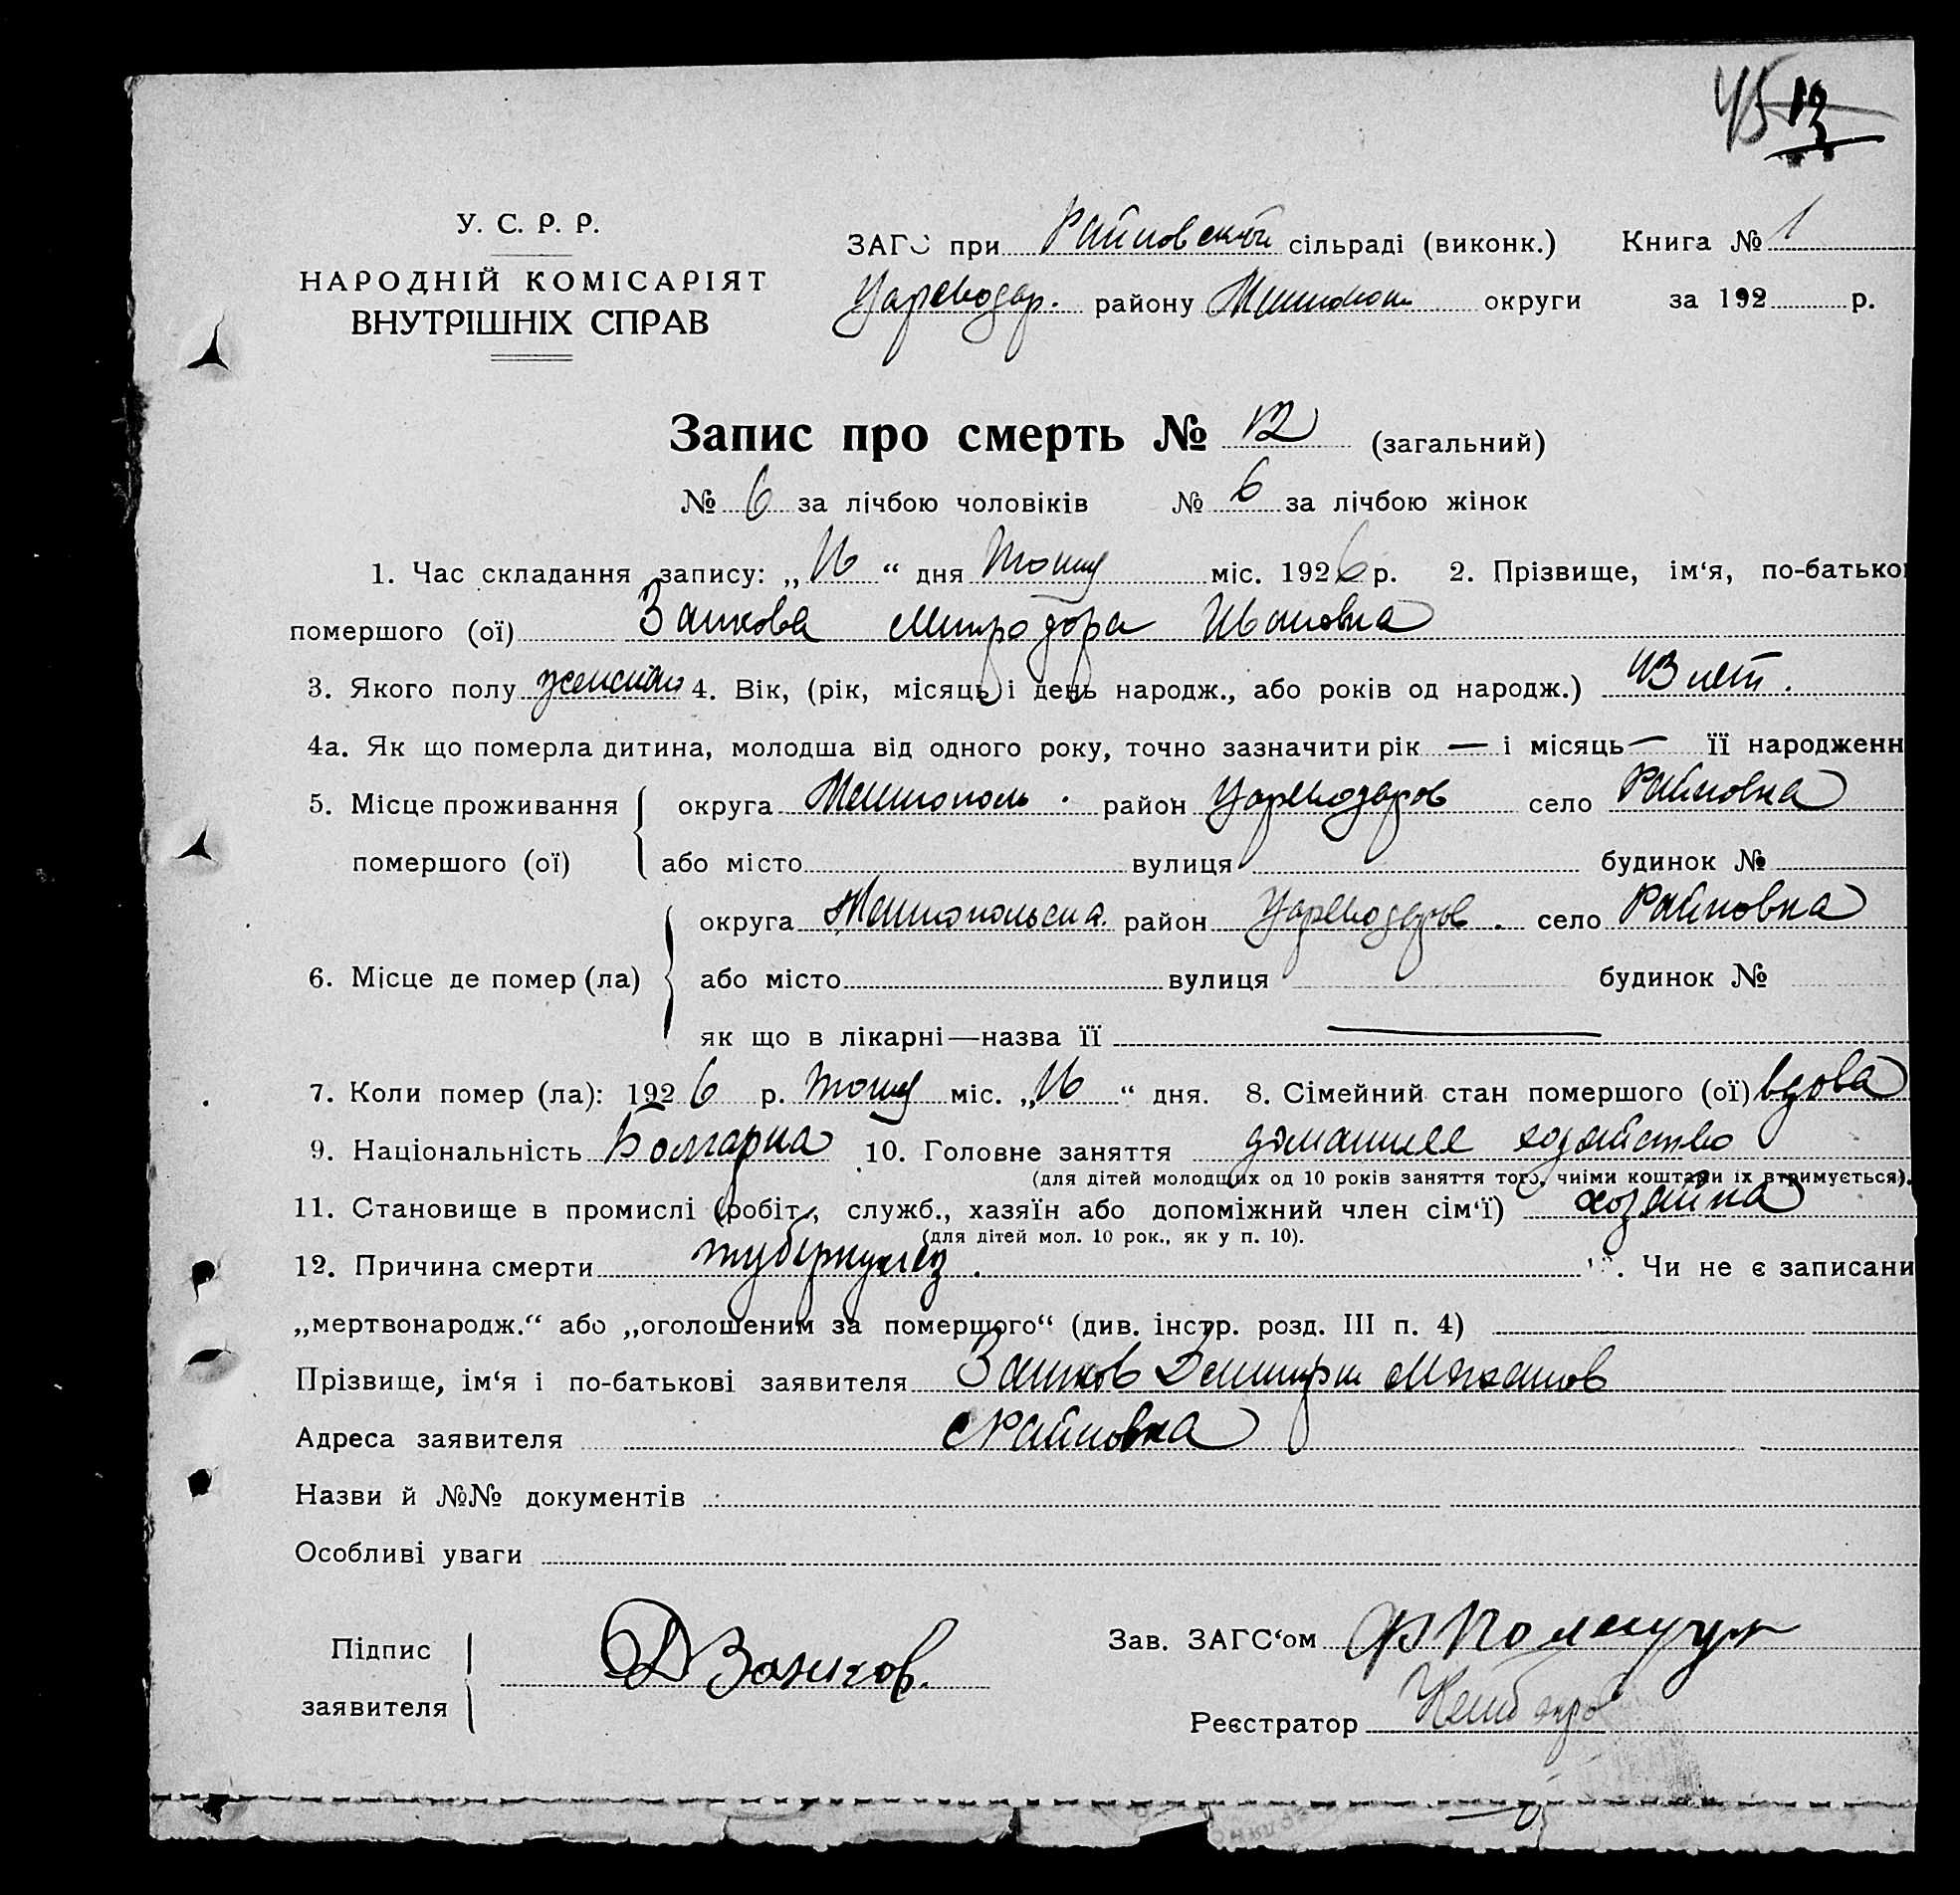 45 12
У. С. Р. Р.
НАРОДНІЙ КОМІСАРІЯТ
ВНУТРІШНІХ СПРАВ
ЗАГС при Райновской сільраді (виконк.) Книга № 1
Цареводар. району Мелитопол округи за 192 р.
Запис про смерть № 12 (загальний)
№ 6 за лічбою чоловіків № 6 за лічбою жінок
1. Час складання запису: „16“ дня міс. 1926 р. 2. Прізвище, ім‘я, по-батько
помершого (ої) Занкова Митродора Ивановна
3. Якого полу женскаго 4. Вік, (рік, місяць і день народж., або років од народж.) 43 лет.
4а. Як що померла дитина, молодша від одного року, точно зазначити рік — і місяць — її народженн
5. Місце проживання округа Мелитополь. район Цареводаров село Райновка
помершого (ої) або місто вулиця будинок №
округа Мелитопольска. район Цареводаров. село Райновка
6. Місце де помер (ла) або місто вулиця будинок №
як що в лікарні—назва її —
7. Коли помер (ла): 1926 р. міс. „16“ дня. 8. Сімейний стан помершого (ої) вдова
9. Національність Болгарка 10. Головне заняття домашнее хозяйство
(для дітей молодших од 10 років заняття того, чиїми коштами їх втримується).
11. Становище в промислі (робіт., служб., хазяїн або допоміжний член сім‘ї) хозяйка
(для дітей мол. 10 рок., як у п. 10).
12. Причина смерти туберкулез. Чи не є записани
„мертвонародж.“ або „оголошеним за помершого“ (див. інстр. розд. III п. 4)
Прізвище, ім‘я і по-батькові заявителя Занков Димитри
Адреса заявителя с Райновка
Назви й №№ документів
Особливі уваги
Підпис заявителя Д Занков.
Зав. ЗАГС‘ом
Реєстратор